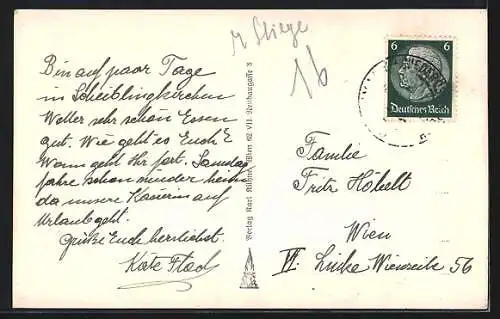 4 Stiege
1b
6 6
Deutsches Reich
Bin auf paar Tage
in Scheiblingkirchen
Wetter sehr schön Essen
gut. Wie geht es Euch?
Wann geht Ihr fort. Samstag
fahre schon wieder heim
da unsere auf
Urlaub geht.
Grüße Euch herzlichst.
Käte
Verlag Karl Wien 62 VII Neubaugasse
Familie
Fritz Höbelt
Wien
VI. Linke Wienzeile 56